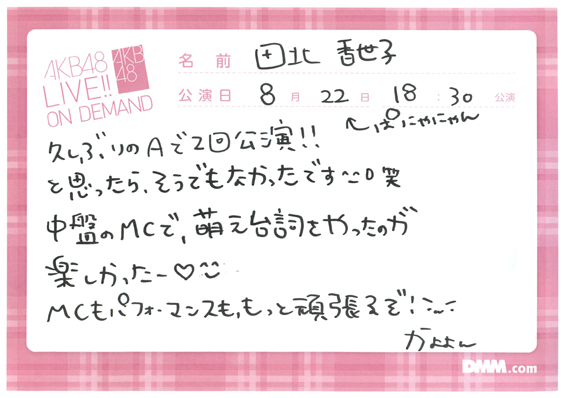 AKB48
LIVE!!
ON DEMAND
AKB
48
名前 田北 香世子
公演日 8月 22日 18:30 公演
↖ぱにゃにゃん
久しぶりのAで2回公演!!
と思ったら、そうでもなかったです 笑
中盤のMCで、萌え台詞をやったのが
楽しかったー♡
MCもパフォーマンスも、もっと頑張るぞ!
かよよん
DMM.com